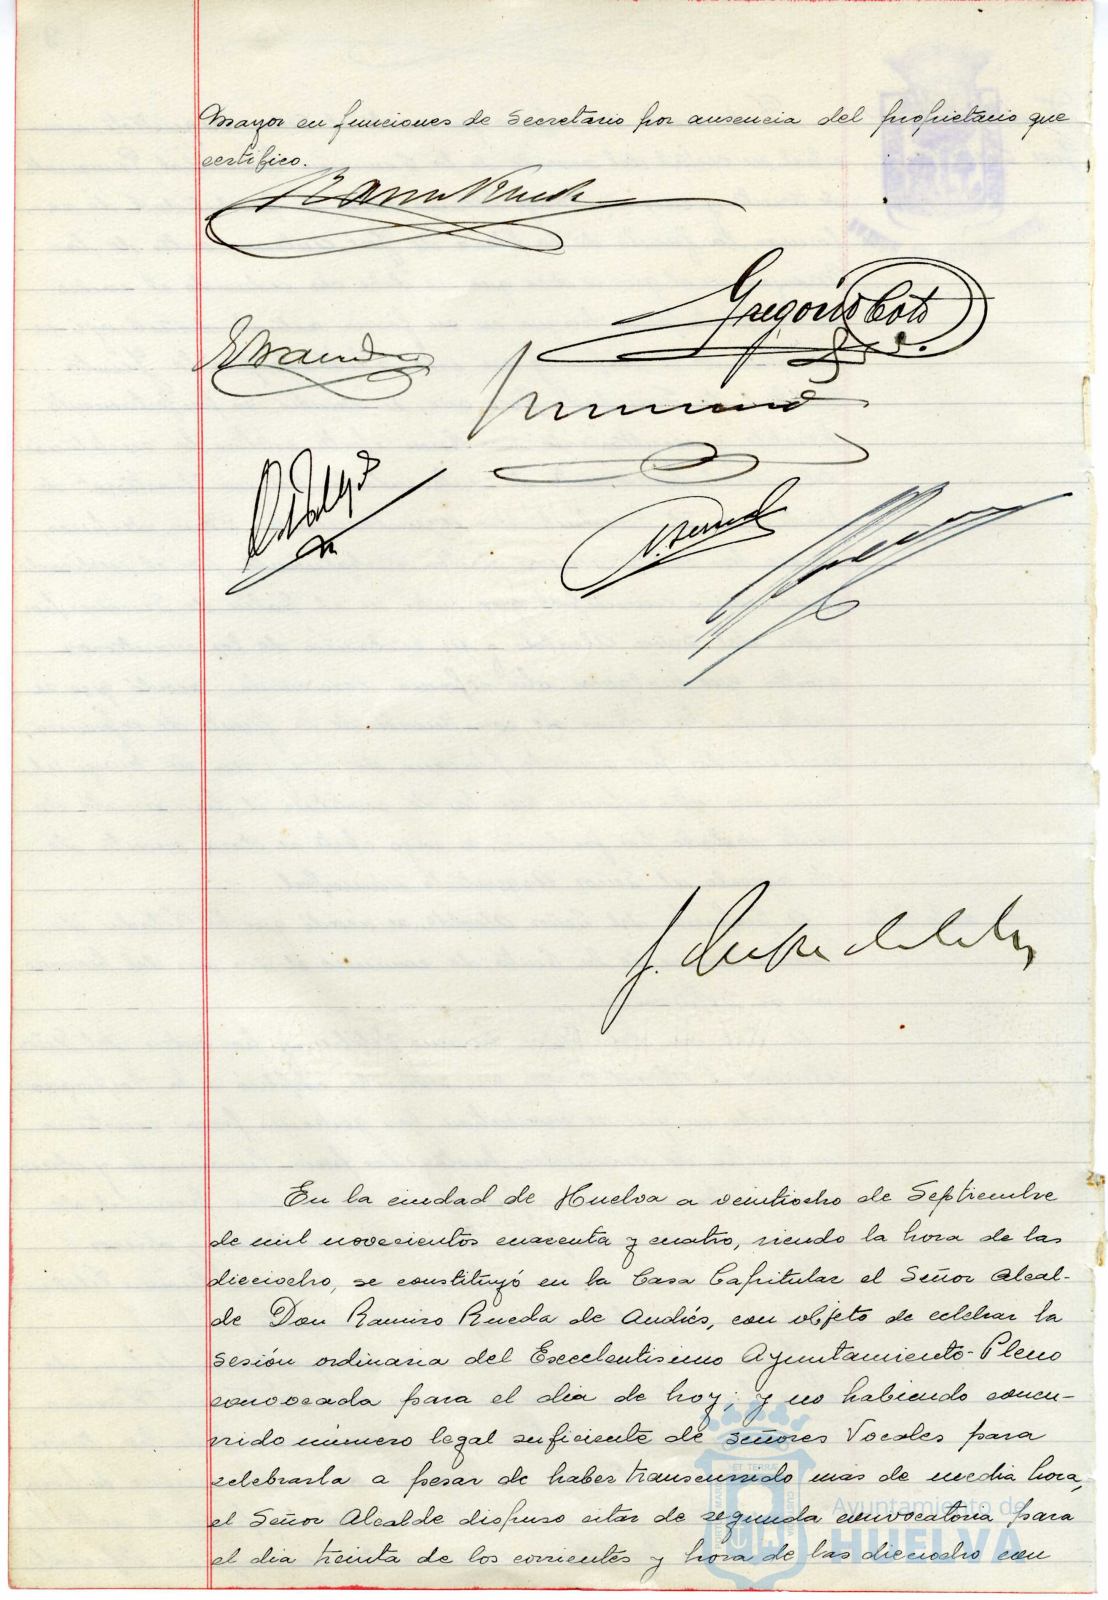 Mayor en funciones de Secretario por ausencia del propietario que
certifico.
Gregorio
En la ciudad de Huelva a veintiocho de Septiembre
de mil novecientos cuarenta y cuatro, siendo la hora de las
dieciocho, se constituyó en la Casa Capitular el Señor Alcal-
de Don Ramiro Rueda de Andrés, con objeto de celebrar la
sesión ordinaria del Excelentísimo Ayuntamiento-Pleno
convocada para el día de hoy; y no habiendo concu-
rrido número legal suficiente de señores Vocales para
celebrarla a pesar de haber transcurrido más de media hora,
el Señor Alcalde dispuso citar de segunda convocatoria para
el día treinta de los corrientes y hora de las dieciocho con
Ayuntamiento de
HUELVA